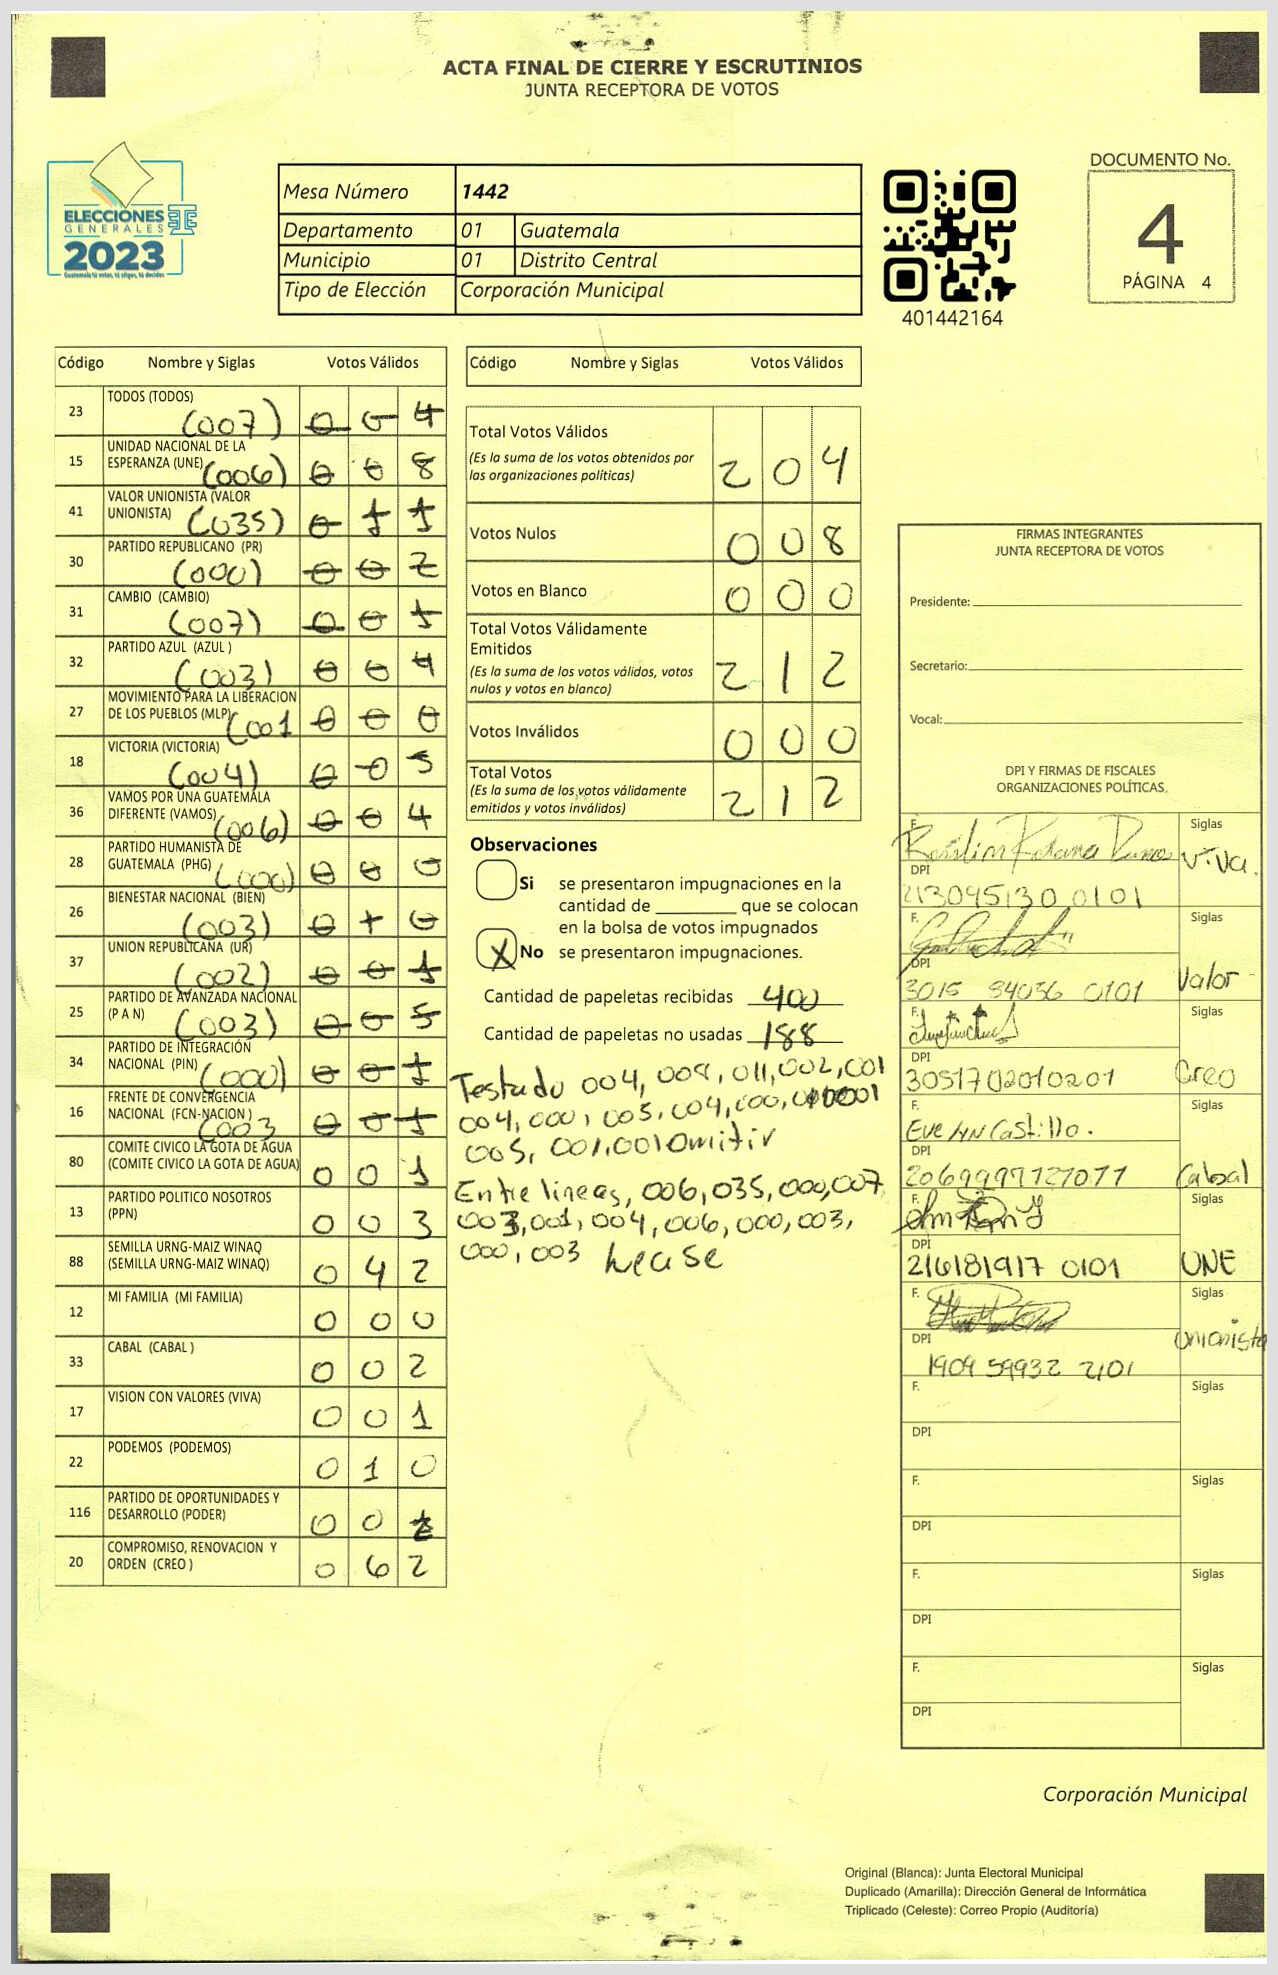 ACTA FINAL DE CIERRE Y ESCRUTINIOS
JUNTA RECEPTORA DE VOTOS
ELECCIONES
GENERALES
2023
Guatemala tú votas, tú eliges, tú decides
Mesa Número 1442
Departamento 01 Guatemala
Municipio 01 Distrito Central
Tipo de Elección Corporación Municipal
401442164
DOCUMENTO No.
4
PÁGINA 4
Código Nombre y Siglas Votos Válidos
23 TODOS (TODOS) (007) 0 0 4
15 UNIDAD NACIONAL DE LA ESPERANZA (UNE) (006) 0 0 8
41 VALOR UNIONISTA (VALOR UNIONISTA) (035) 0 1 1
30 PARTIDO REPUBLICANO (PR) (000) 0 0 2
31 CAMBIO (CAMBIO) (007) 0 0 1
32 PARTIDO AZUL (AZUL ) (003) 0 0 4
27 MOVIMIENTO PARA LA LIBERACION DE LOS PUEBLOS (MLP) (001 0 0 0
18 VICTORIA (VICTORIA) (004) 0 0 5
36 VAMOS POR UNA GUATEMALA DIFERENTE (VAMOS) (006) 0 0 4
28 PARTIDO HUMANISTA DE GUATEMALA (PHG) (000) 0 0 0
26 BIENESTAR NACIONAL (BIEN) (003) 0 1 0
37 UNION REPUBLICANA (UR) (002) 0 0 1
25 PARTIDO DE AVANZADA NACIONAL (P A N) (003) 0 0 5
34 PARTIDO DE INTEGRACIÓN NACIONAL (PIN) (000) 0 0 1
16 FRENTE DE CONVERGENCIA NACIONAL (FCN-NACION ) (003 0 0 1
80 COMITE CIVICO LA GOTA DE AGUA (COMITE CIVICO LA GOTA DE AGUA) 0 0 1
13 PARTIDO POLITICO NOSOTROS (PPN) 0 0 3
88 SEMILLA URNG-MAIZ WINAQ (SEMILLA URNG-MAIZ WINAQ) 0 4 2
12 MI FAMILIA (MI FAMILIA) 0 0 0
33 CABAL (CABAL ) 0 0 2
17 VISION CON VALORES (VIVA) 0 0 1
22 PODEMOS (PODEMOS) 0 1 0
116 PARTIDO DE OPORTUNIDADES Y DESARROLLO (PODER) 0 0
20 COMPROMISO, RENOVACION Y ORDEN (CREO ) 0 6 2
Código Nombre y Siglas Votos Válidos
Total Votos Válidos 2 0 4
(Es la suma de los votos obtenidos por
las organizaciones politicas)
Votos Nulos 0 0 8
Votos en Blanco 0 0 0
Total Votos Válidamente
Emitidos 2 1 2
(Es la suma de los votos válidos, votos
nulos y votos en blanco)
Votos Inválidos 0 0 0
Total Votos 2 1 2
(Es la suma de los votos válidamente
emitidos y votos inválidos)
Observaciones
Si se presentaron impugnaciones en la
cantidad de ________ que se colocan
en la bolsa de votos impugnados
X No se presentaron impugnaciones.
Cantidad de papeletas recibidas 400
Cantidad de papeletas no usadas 188
Testado 004, 008, 011, 002, 001
004, 000, 005, 004, 000, 001
005, 001, 001 Omitir
Entre lineas, 006, 035, 000, 007
003, 001, 004, 006, 000, 003,
000, 003 Lease
FIRMAS INTEGRANTES
JUNTA RECEPTORA DE VOTOS
Presidente:
Secretario:
Vocal:
DPI Y FIRMAS DE FISCALES
ORGANIZACIONES POLÍTICAS.
F. Siglas
DPI VIVA.
213095130 0101
F. Siglas
DPI Valor
3015 84036 0101
F. Siglas
DPI Creo
3051702010201
F. Eve Castillo. Siglas
DPI Cabal
2069997727077
F. Siglas
DPI UNE
216181917 0101
F. Siglas
DPI Unionista
1909 59932 2101
F. Siglas
DPI
F. Siglas
DPI
F. Siglas
DPI
F. Siglas
DPI
Corporación Municipal
Original (Blanca): Junta Electoral Municipal
Duplicado (Amarilla): Dirección General de Informática
Triplicado (Celeste): Correo Propio (Auditoría)